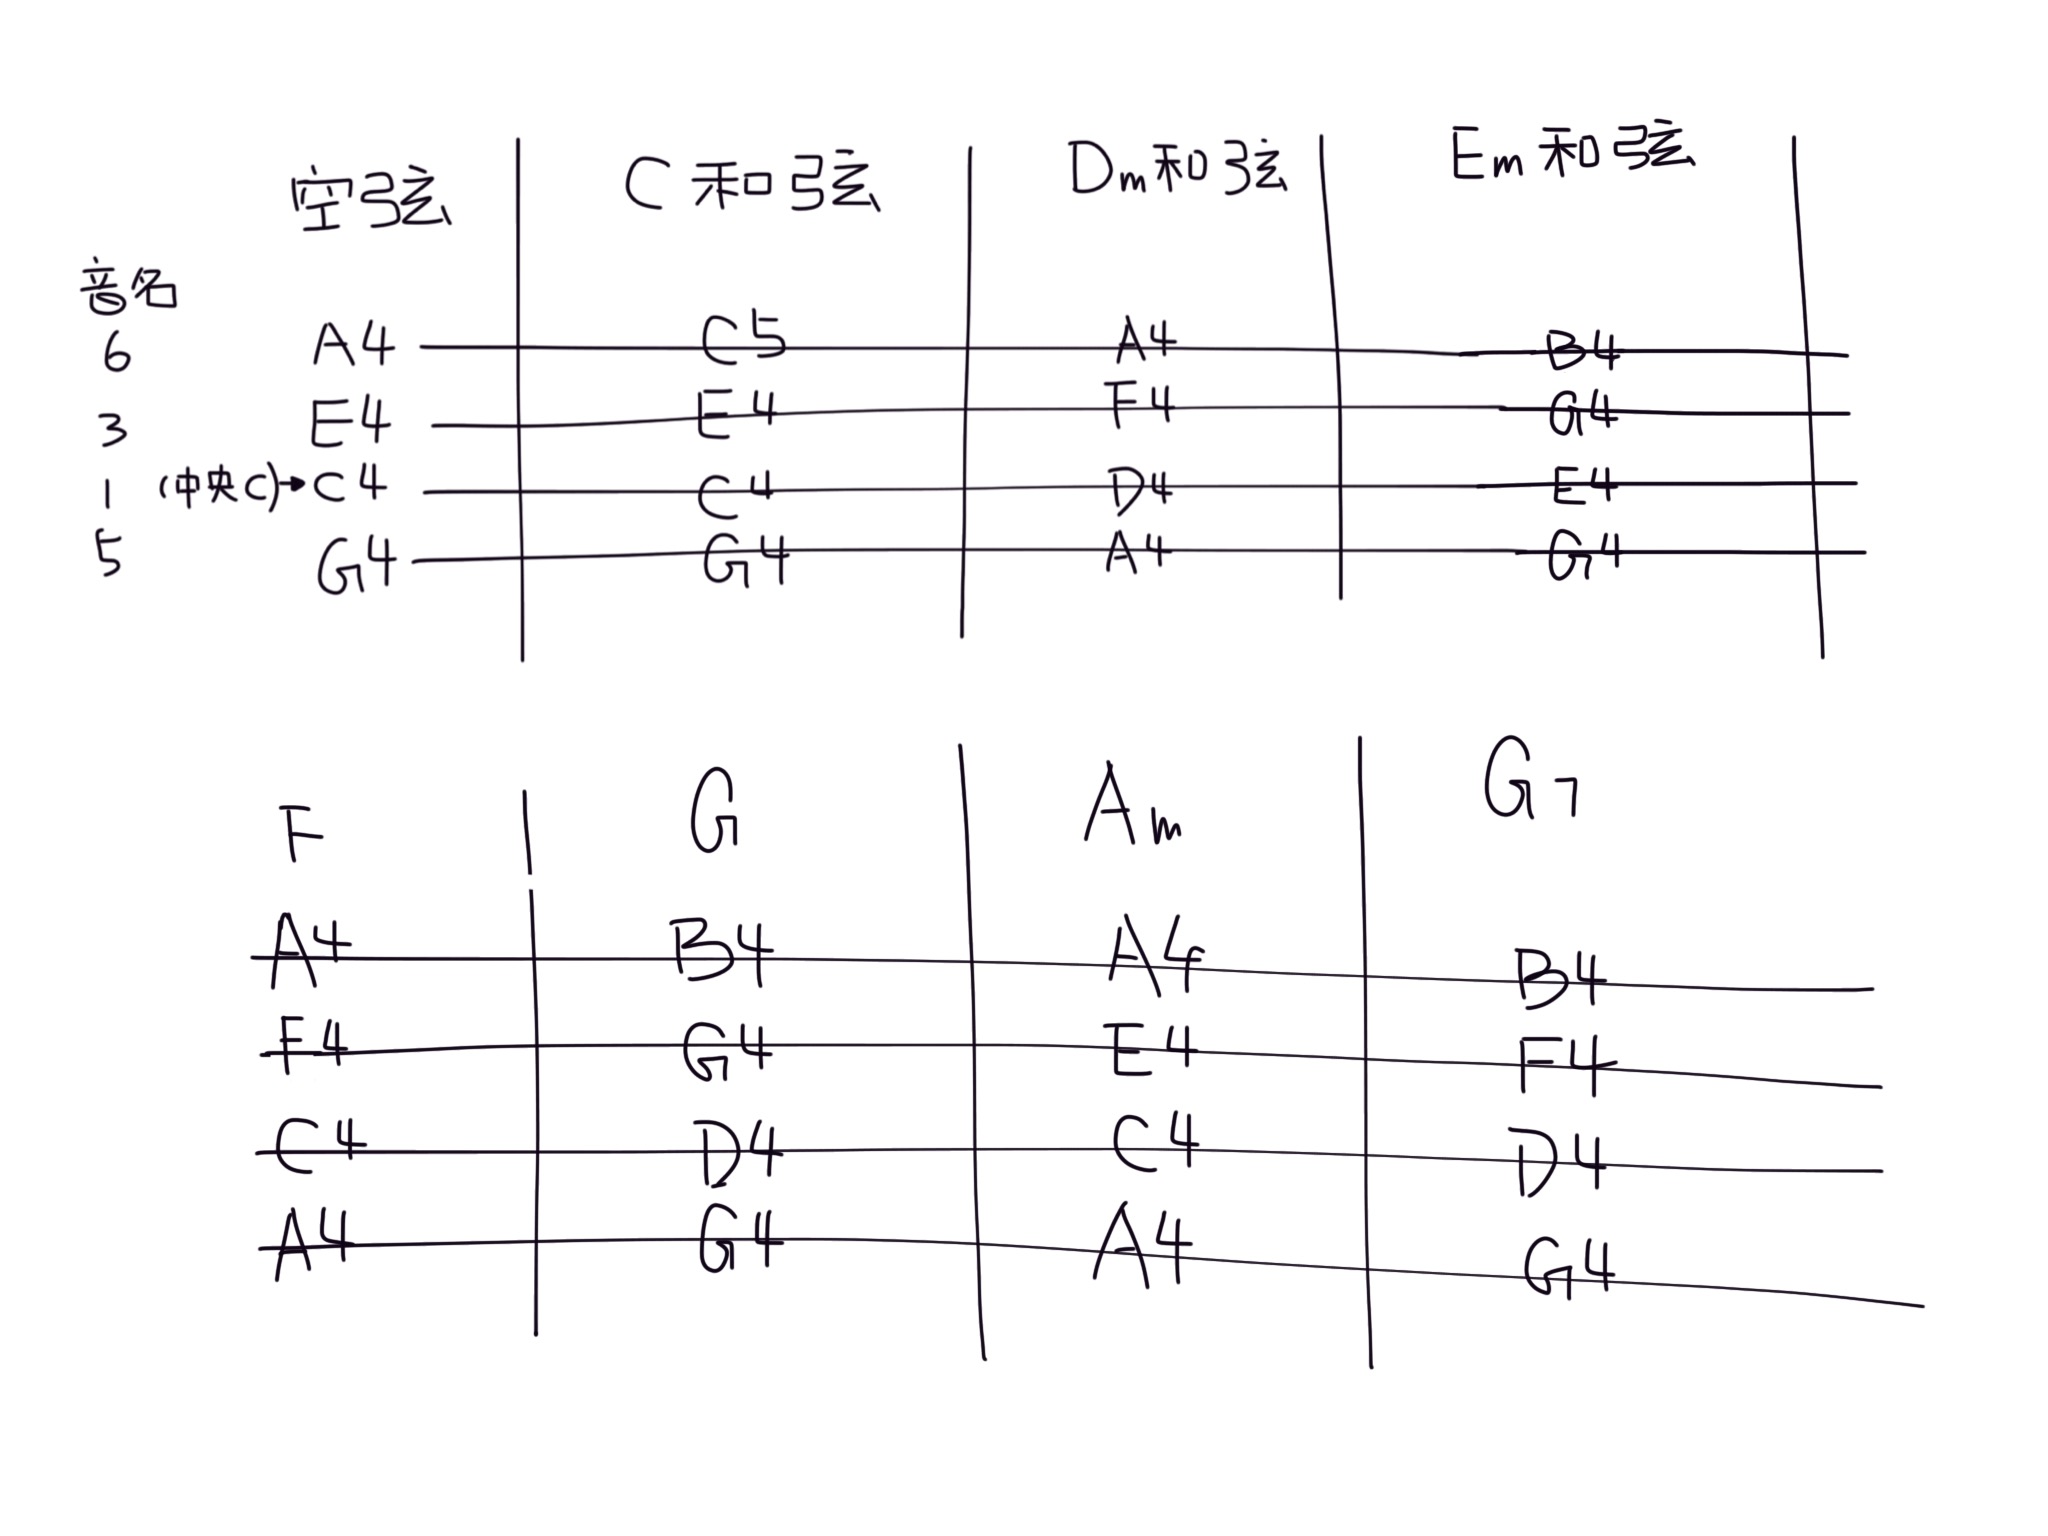 空弦 C和弦 Dm和弦 Em和弦
音名
6 A4 C5 A4 B4
3 E4 E4 F4 G4
1 (中央C)→ C4 C4 D4 E4
5 G4 G4 A4 G4
F G Am G7
A4 B4 A4 B4
F4 G4 E4 F4
C4 D4 C4 D4
A4 G4 A4 G4